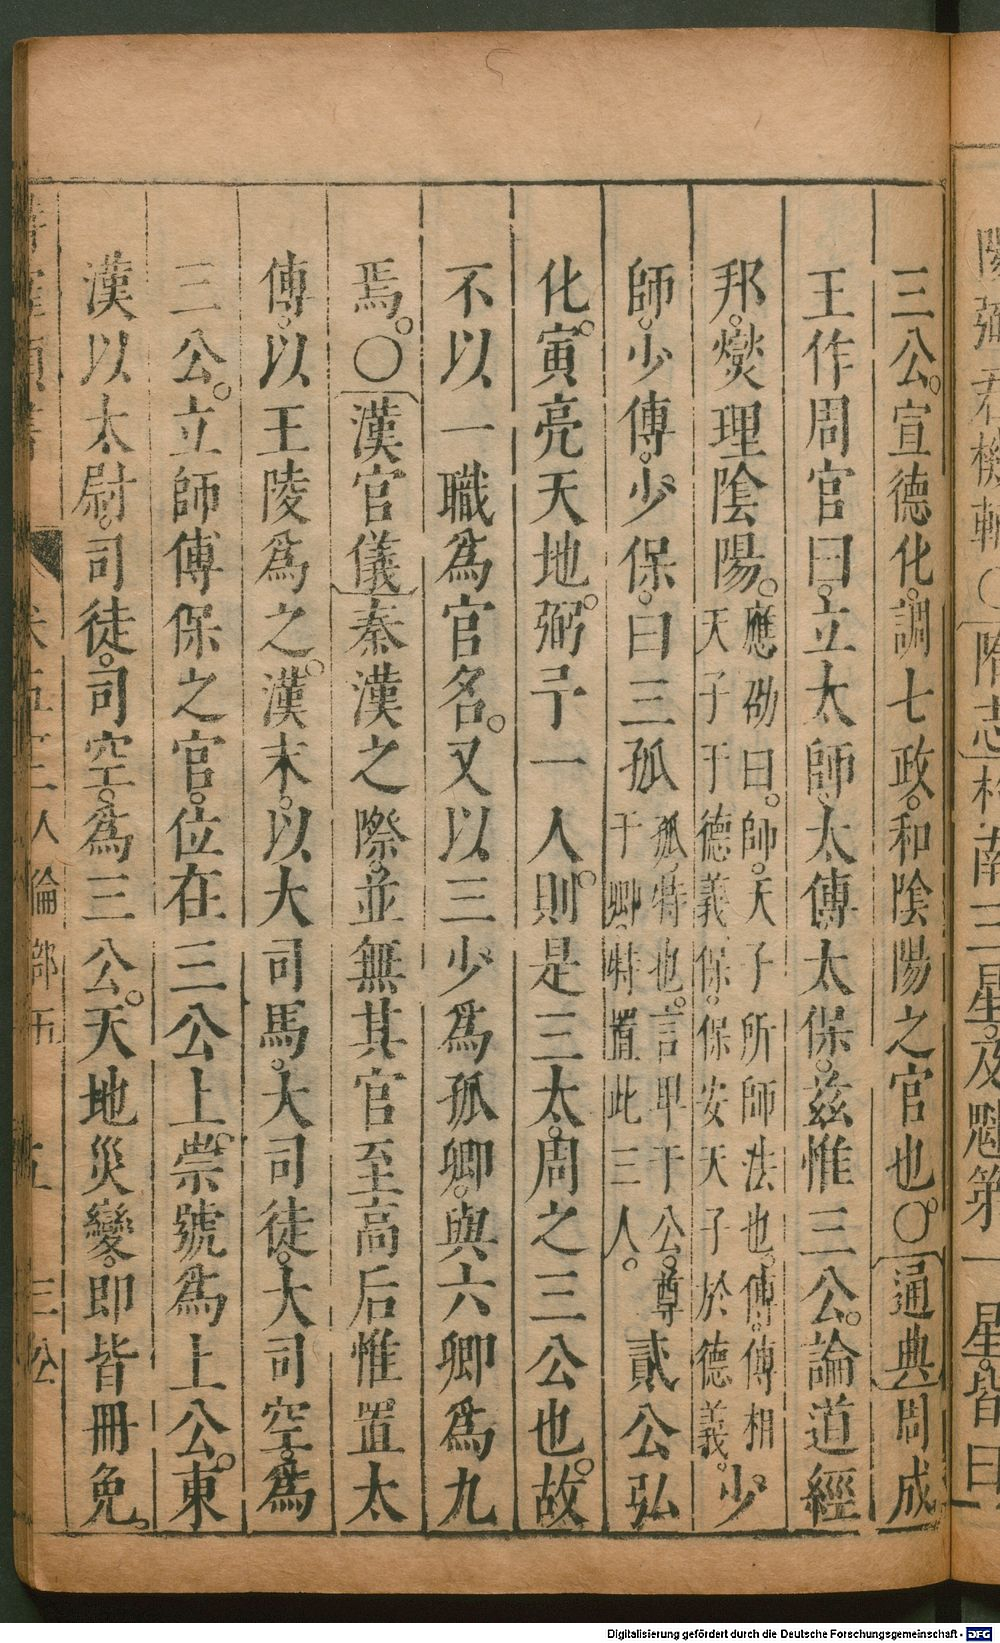 三公。宣德化。調七政。和陰陽之官也。○通典周成
王作周官曰。立太師。太傅。太保。茲惟三公。論道經
邦。燮理陰陽。應劭曰。師。天子所師法也。傅。傅相天子于德義。保。保安天子於德義。少
師。少傅。少保。曰三孤孤。特也。言卑于公。尊于卿。特置此三人。貳公弘
化。寅亮天地。弼予一人。則是三太。周之三公也。故
不以一職為官名。又以三少為孤卿。與六卿為九
焉。○漢官儀秦漢之際。並無其官至高后惟置太
傅。以王陵為之。漢末。以大司馬。大司徒。大司空。為
三公。立師傅保之官。位在三公上。崇號為上公。東
漢以太尉。司徒。司空。為三公。天地災變。即皆冊免。
人倫部五
三公
Digitalisierung gefördert durch die Deutsche Forschungsgemeinschaft - DFG